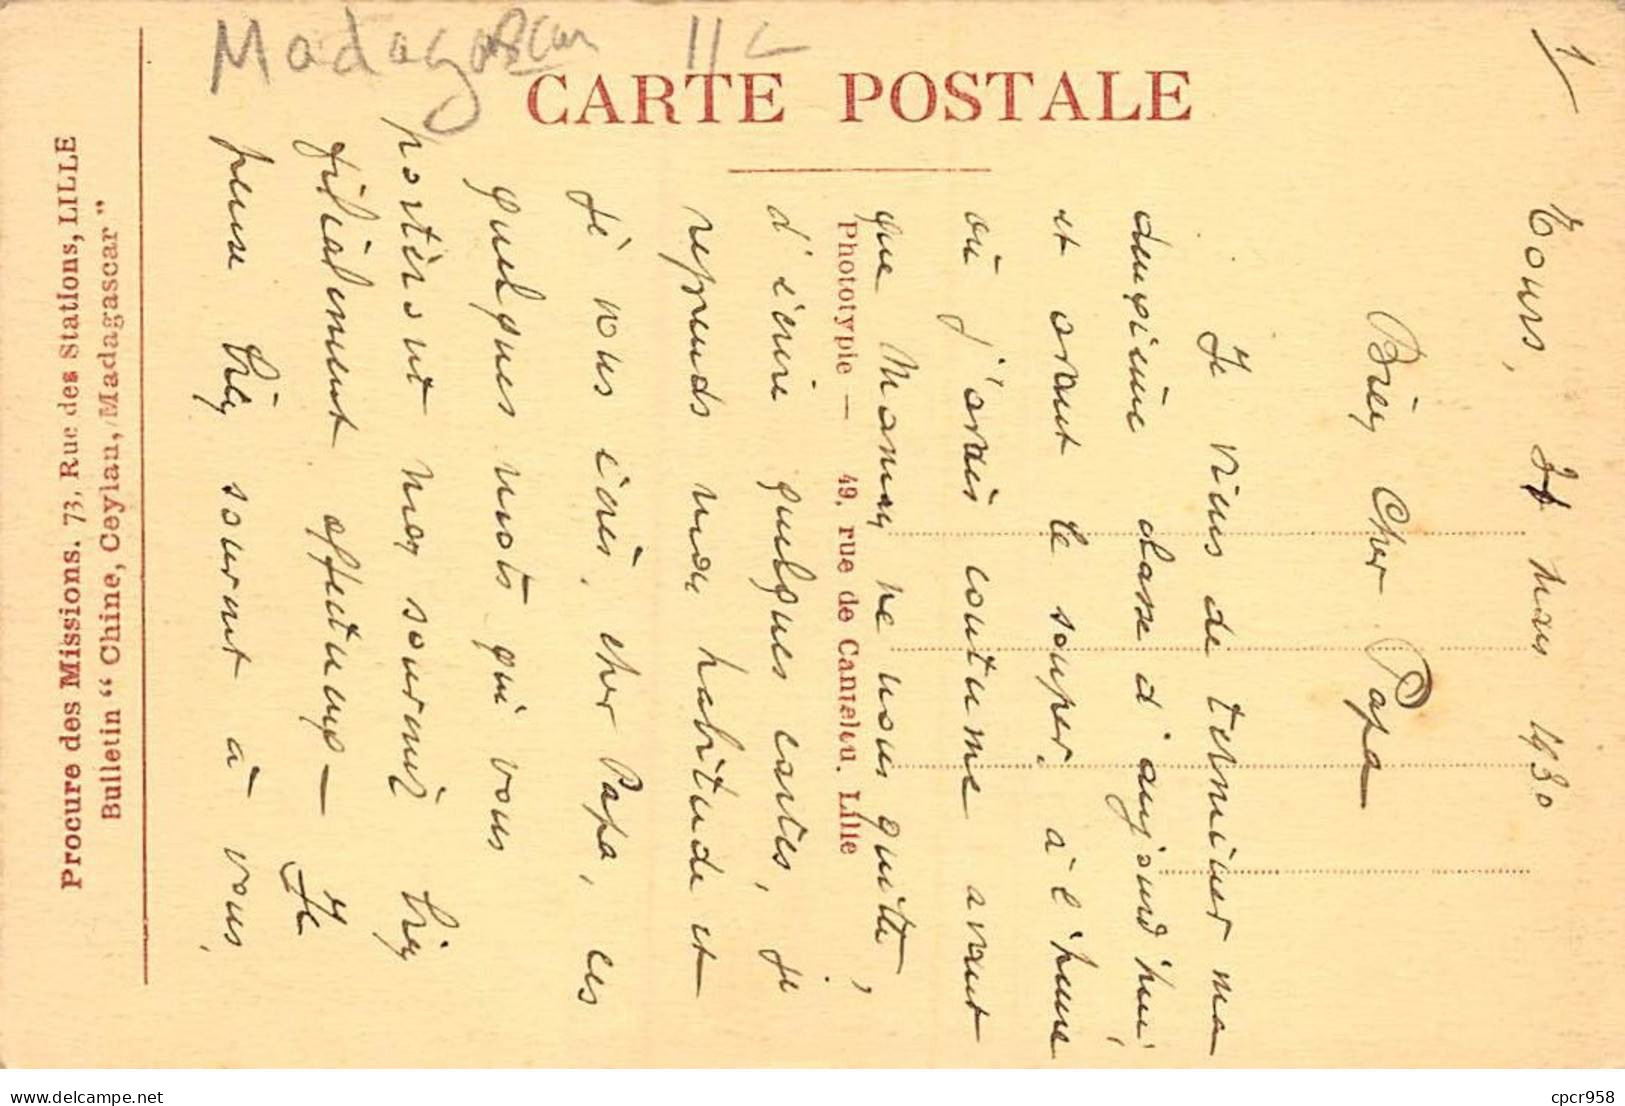 Madagascar
CARTE POSTALE
1
Procure des Missions. 73, Rue des Stations, LILLE
Bulletin “ Chine, Ceylan, Madagascar”
Phototypie — 49, rue de Canteleu. Lille
Tours, mars 1930
Bien Cher Papa
Je viens de terminer ma
deuxième classe d'aujourd'hui,
et avant le souper, à l'heure
où j'avais coutume avant
que Maman ne nous quitte,
d'écrire quelques cartes, je
reprends mon habitude et
je vous écris, cher Papa, ces
quelques mots qui vous
portiront mon souvenir bien
filialement affectueux — Je
pense bien souvent à vous,
www.delcampe.net
cpcr958